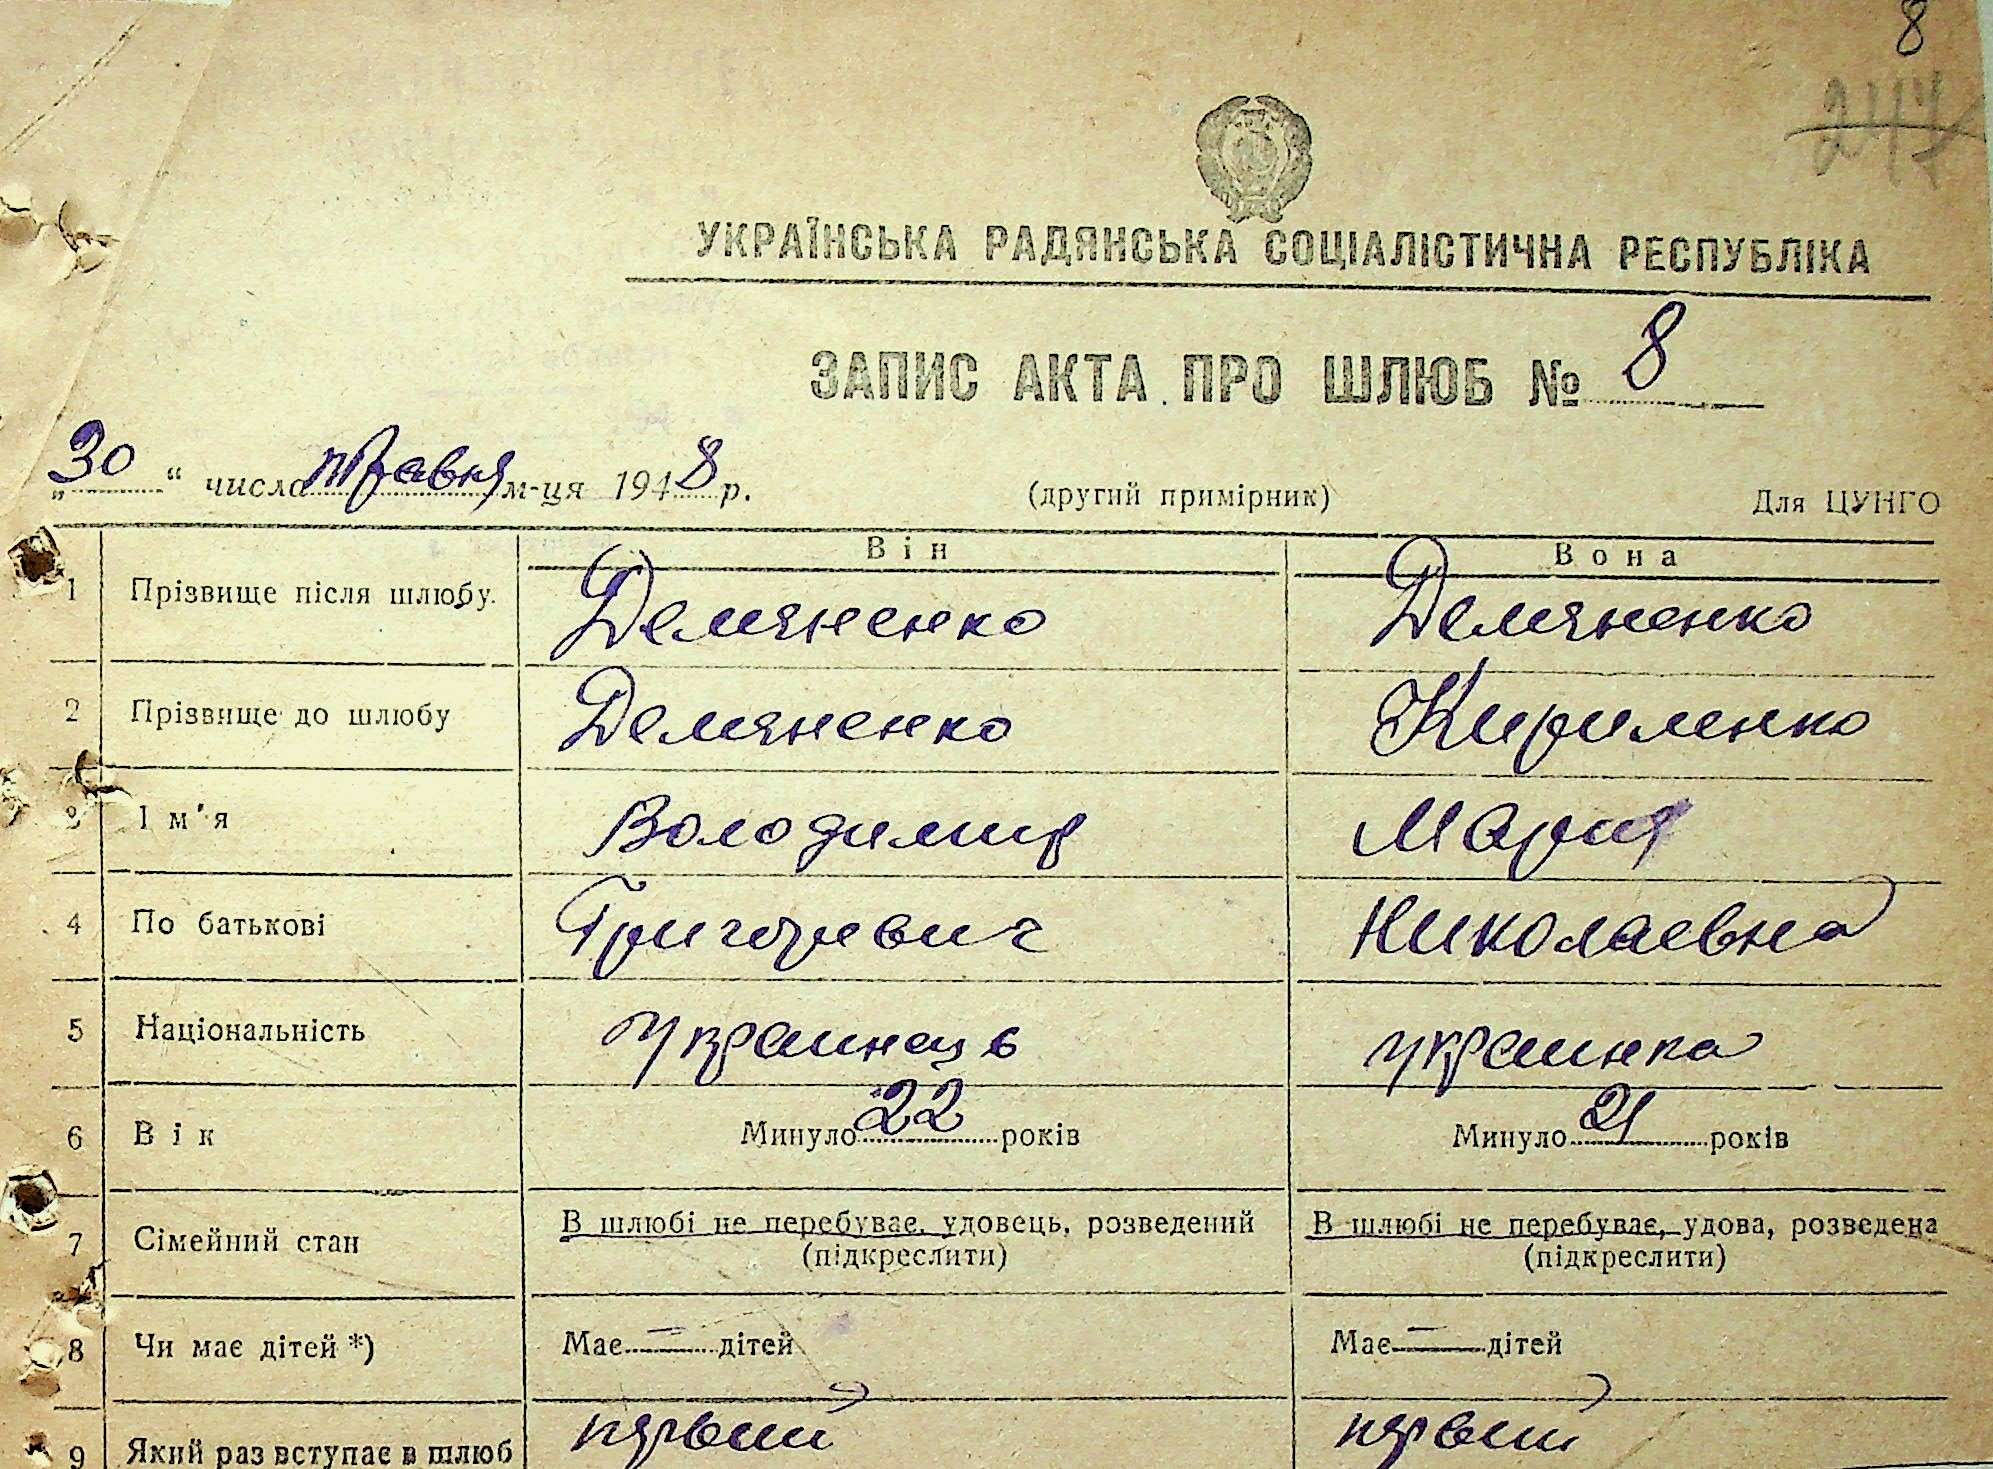 8
УКРАЇНСЬКА РАДЯНСЬКА СОЦІАЛІСТИЧНА РЕСПУБЛІКА
ЗАПИС АКТА ПРО ШЛЮБ № 8
„30“ числа травня м-ця 1948 р. (другий примірник) Для ЦУНГО
Він Вона
1 Прізвище після шлюбу. Демяненко Демяненко
2 Прізвище до шлюбу Демяненко Кириленко
3 Ім'я Володимир Мария
4 По батькові Григоревич Николаевна
5 Національність Украинець украинка
6 Вік Минуло 22 років Минуло 21 років
7 Сімейний стан В шлюбі не перебуває, удовець, розведений В шлюбі не перебуває, удова, розведена
(підкреслити) (підкреслити)
8 Чи має дітей *) Має — дітей Має — дітей
9 Який раз вступає в шлюб